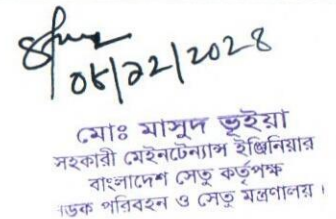 মোঃ মাসুদ ভূইয়া
সহকারী মেইনটেন্যান্স ইঞ্জিনিয়ার
বাংলাদেশ সেতু কর্তৃপক্ষ
সড়ক পরিবহন ও সেতু মন্ত্রণালয়।